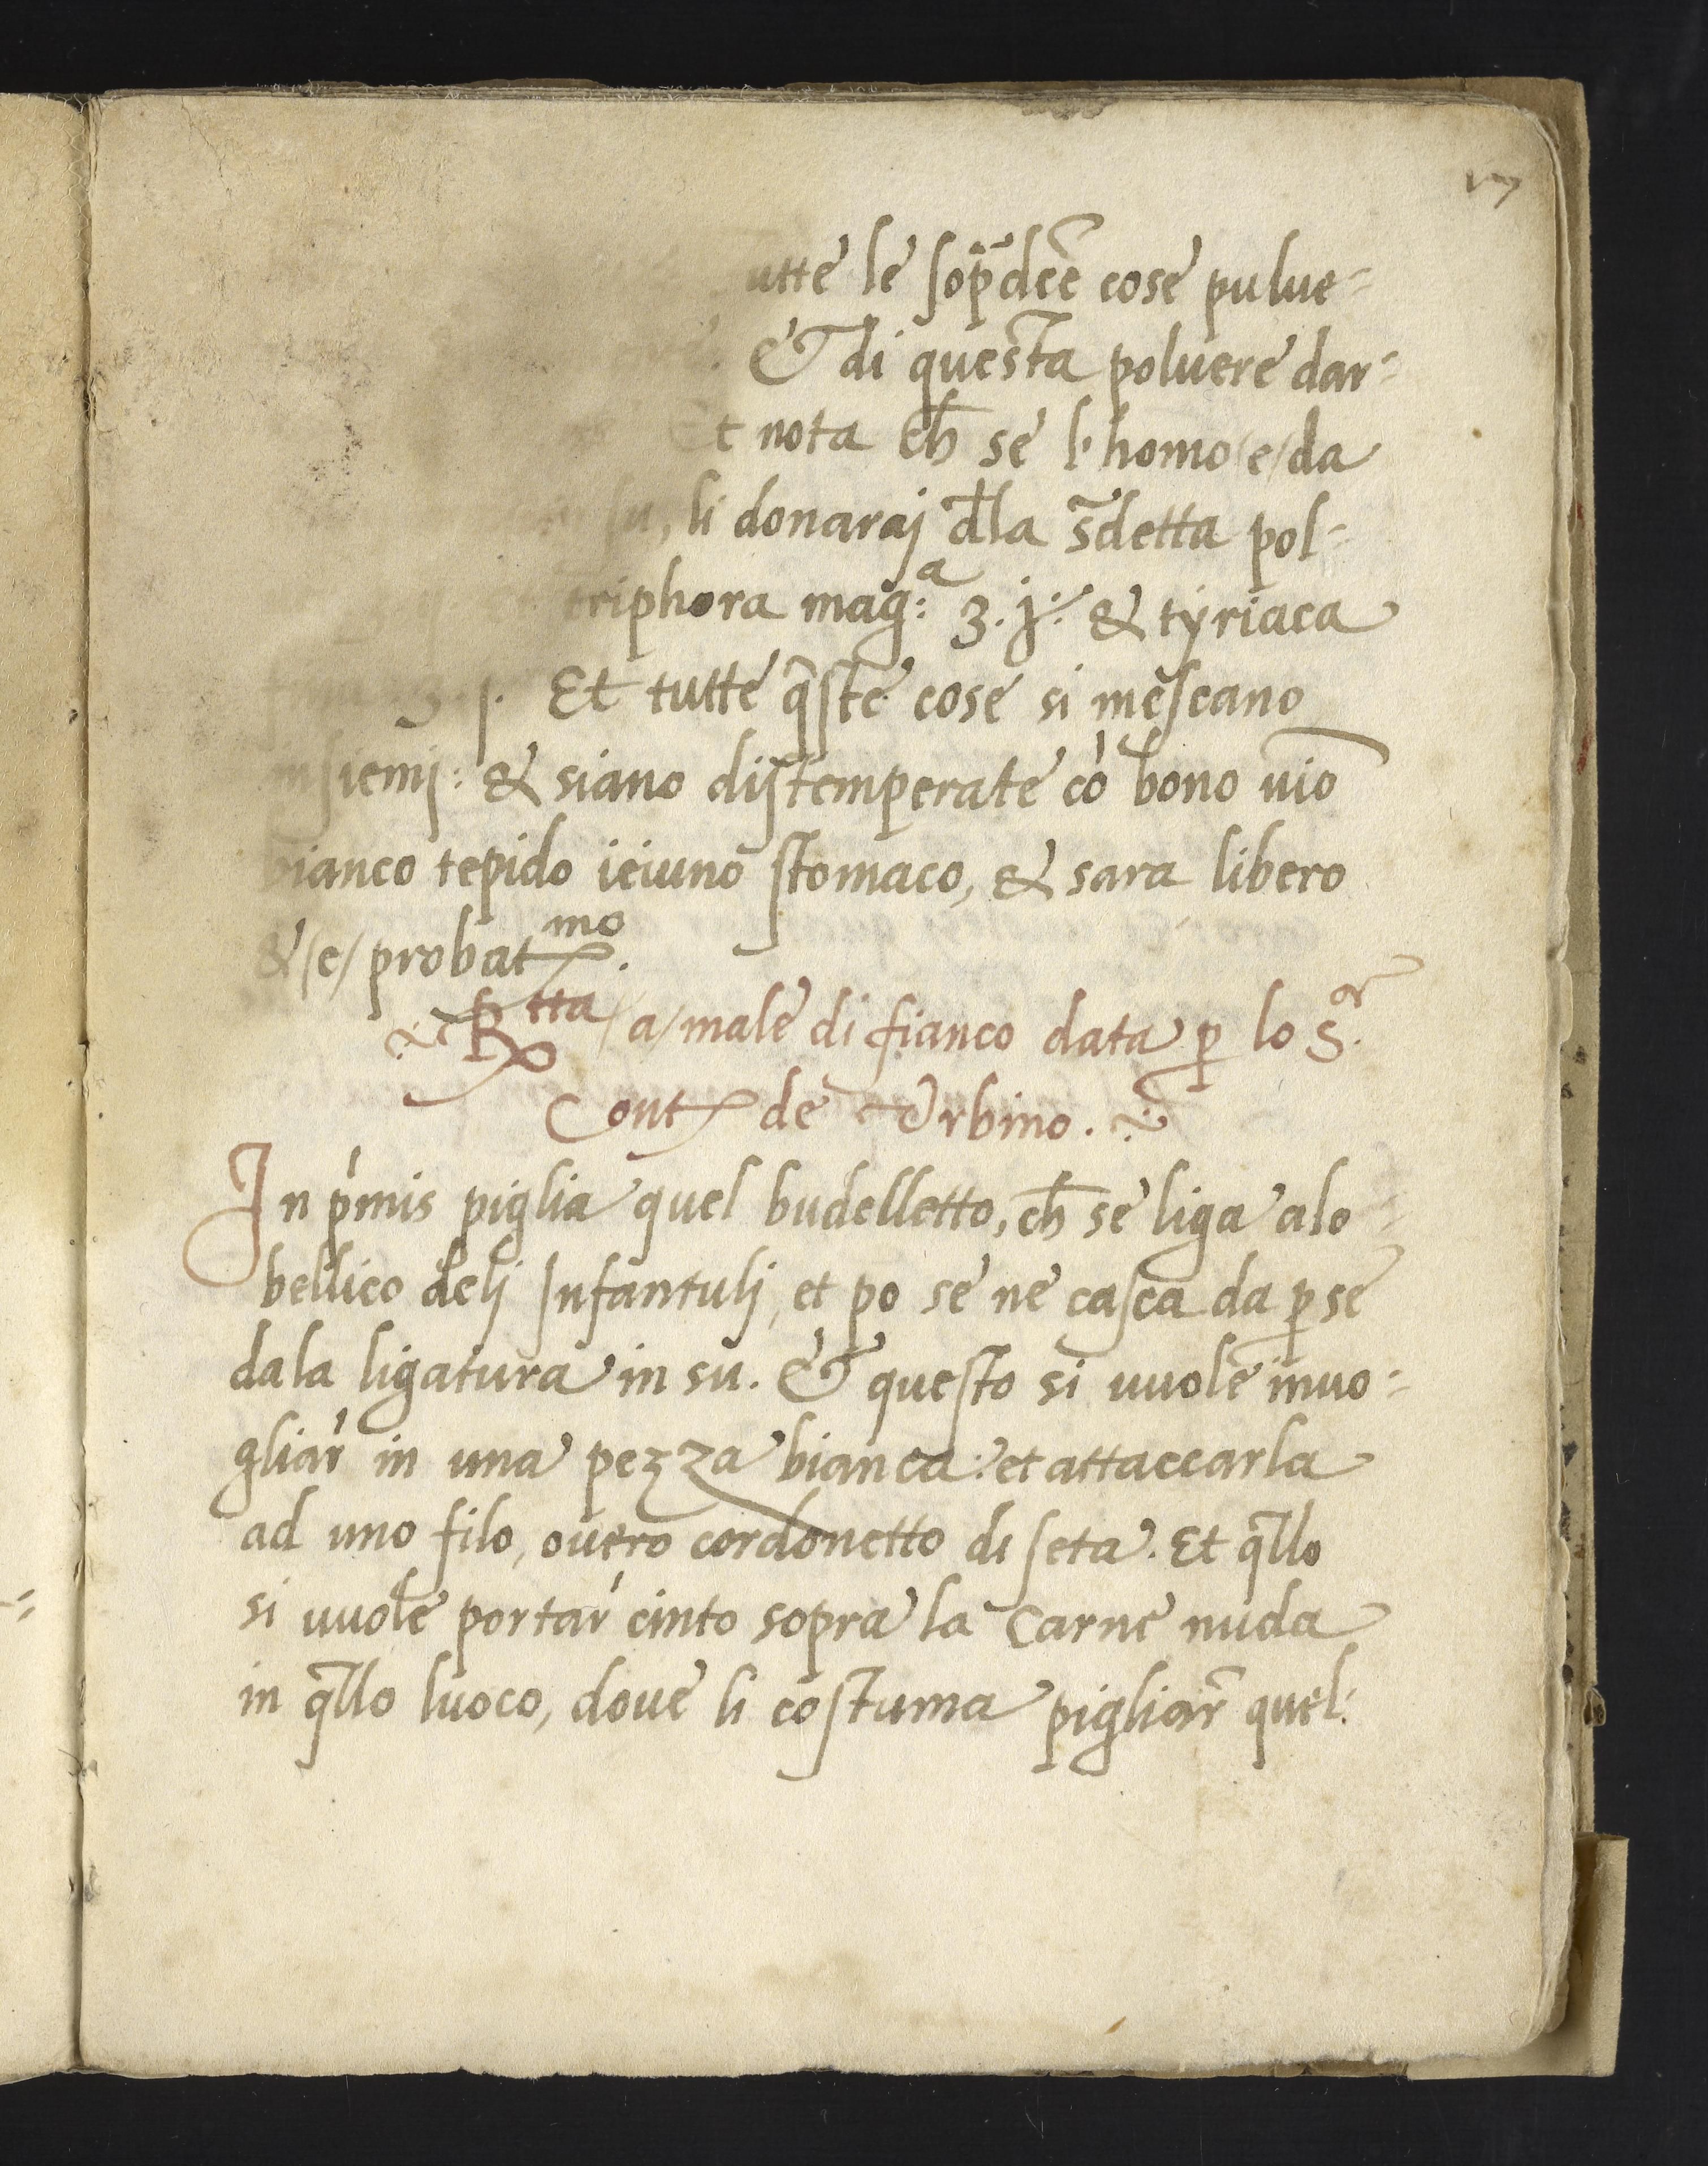 utte le sop̄dc̄e cose pulue=
& di questa poluere dar=
Et nota ch̄ se l'homo /e/ da
su, li donaraj d̄la s̄detta pol=
triphora mag:ᵃ ʒ. j: & tyriaca
ʒ. j. Et tutte q̄ste cose si mescano
insiemj: & siano distemperate cō bono uīo
bianco tepido ieiuno stomaco, & sara libero
& /e/ probatᵐᵒ.
Rᵗᵗᵃ /a/ male di fianco data ꝑ lo S.ᵒʳ
Cont de Urbino.
In p'mis piglia quel budelletto, ch̄ se liga alo
bellico delj Infantulj, et po se ne casca da ꝑ se
dala ligatura in su. & questo si uuole inuo=
gliar' in una pezza bianca: et attaccarla
ad uno filo, ouero cordonetto di seta. Et q̄llo
si uuole portar' cinto sopra la Carne nuda
in q̄llo luoco, doue li costuma pigliar̄ quel: